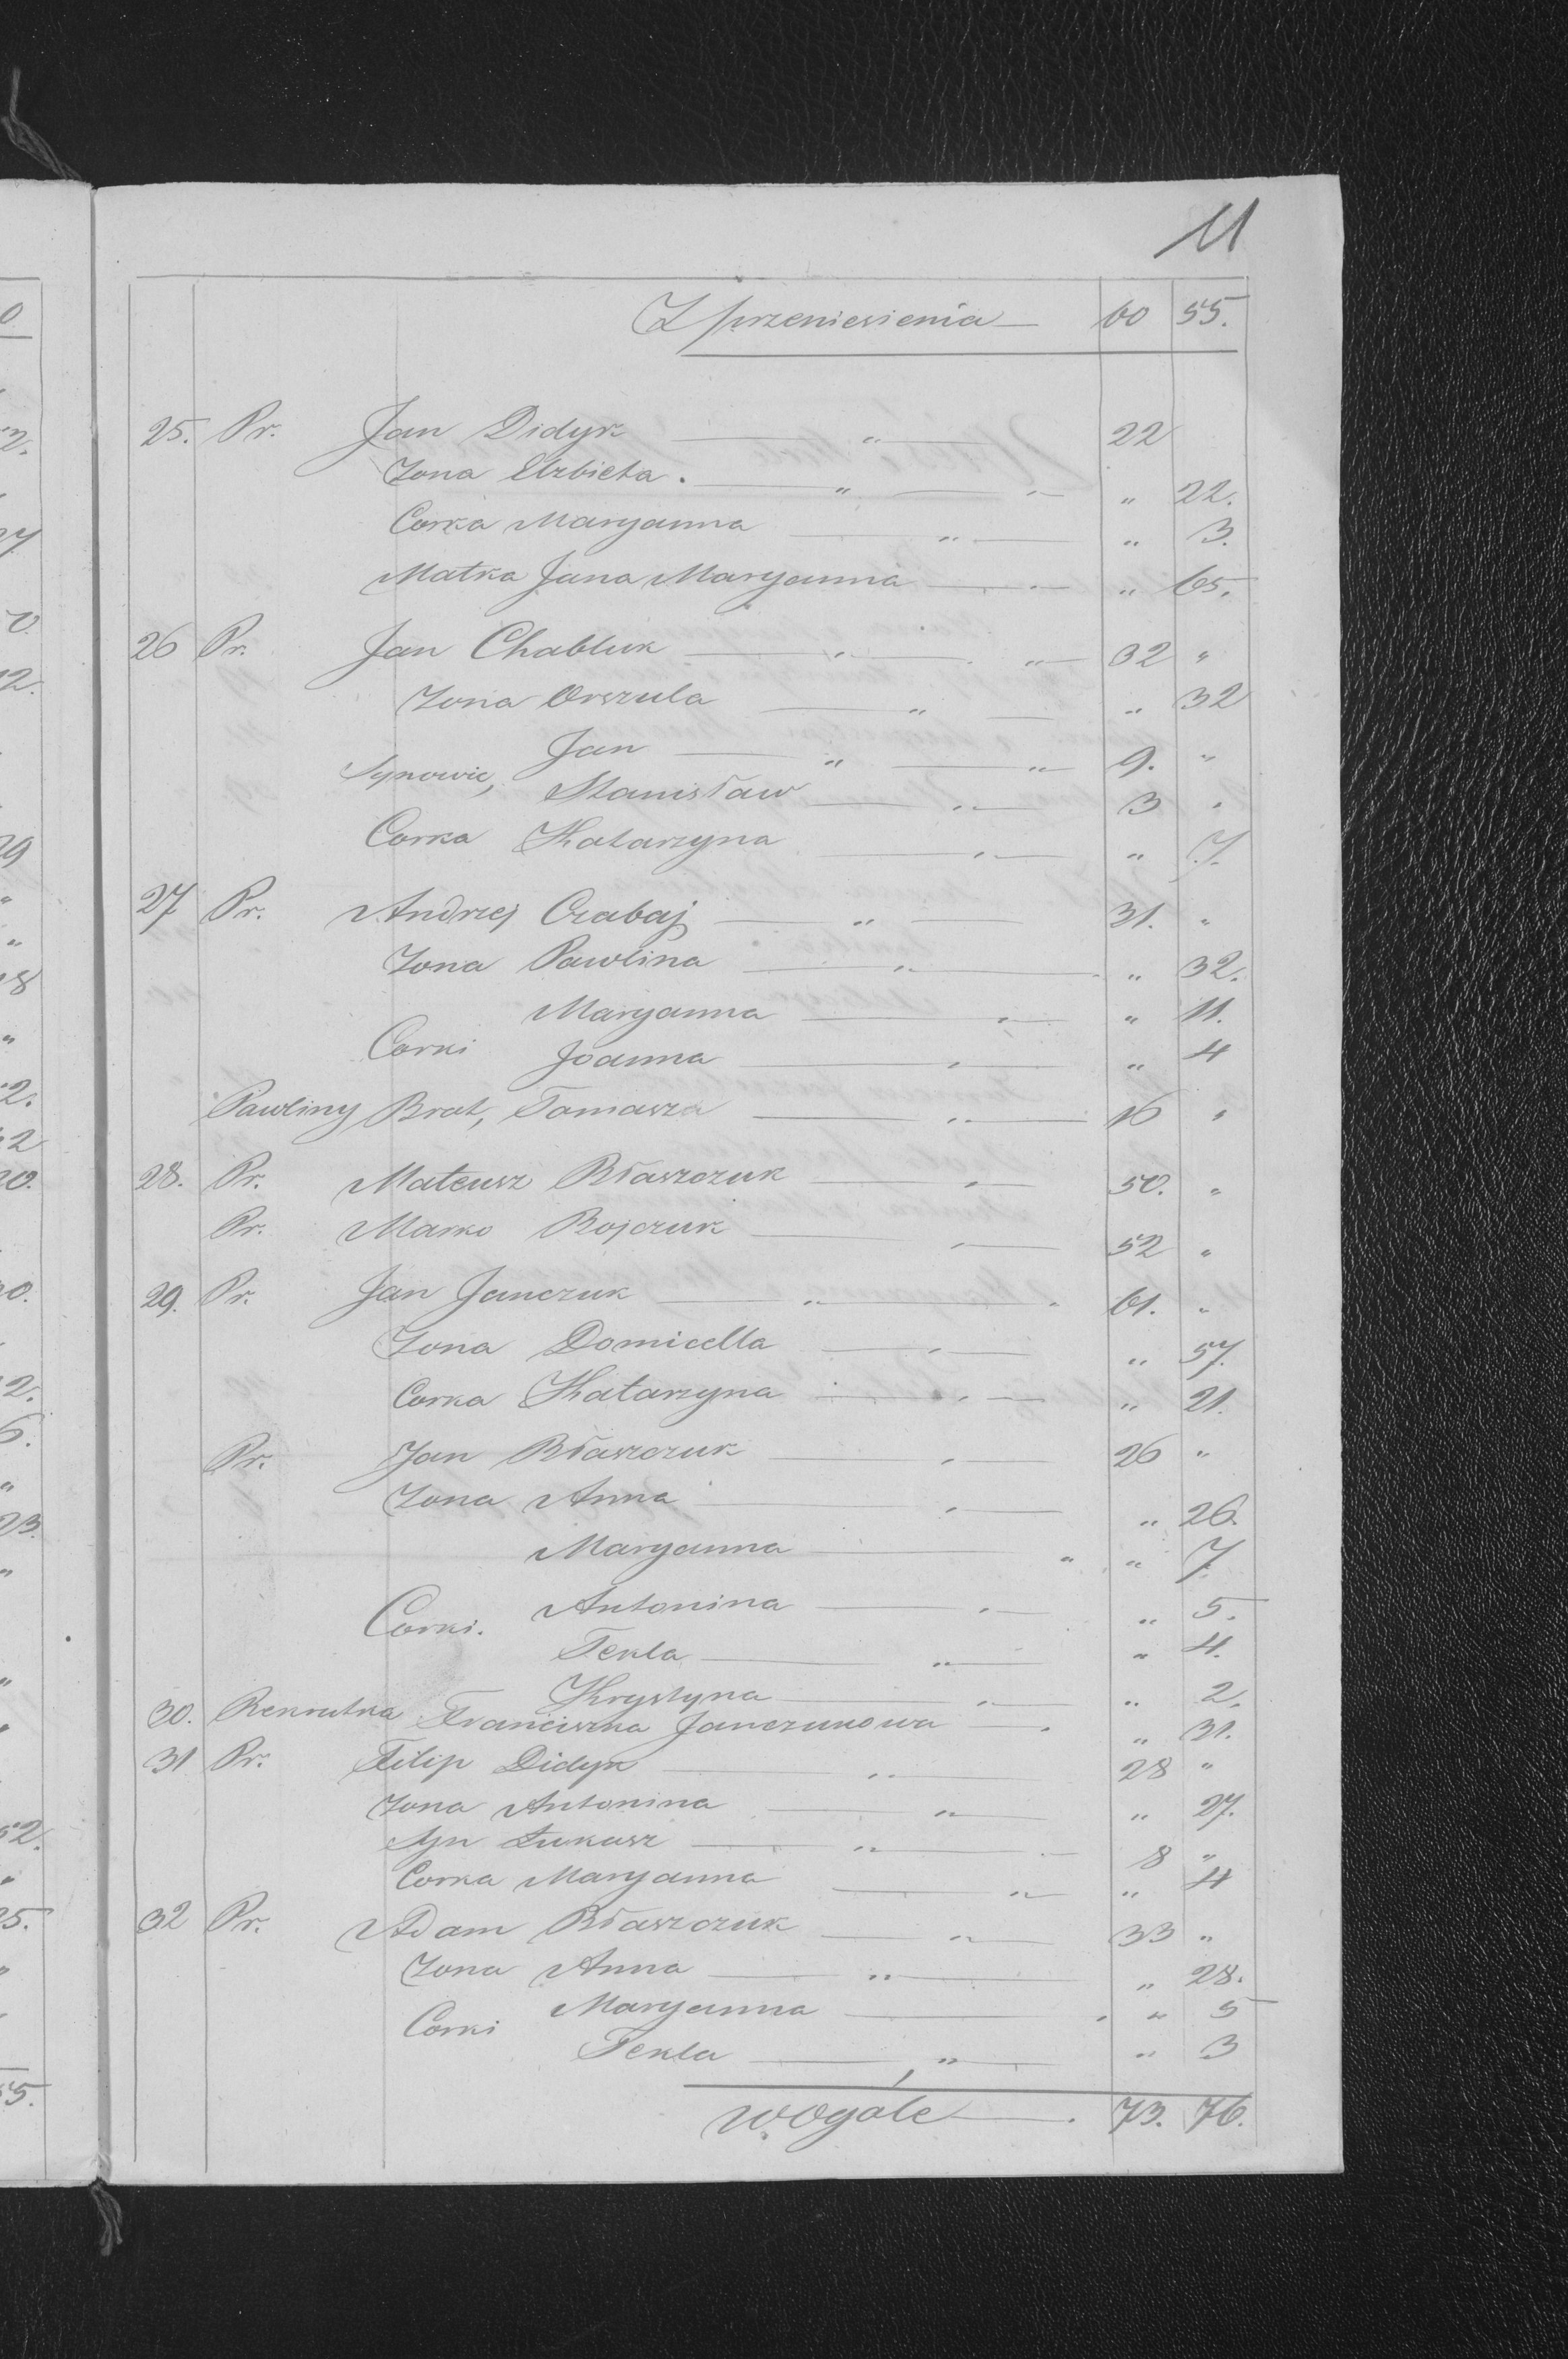 11
Z przeniesienia — 60 55.
25. Pr. Jan Didyk — " — 22
Zona Elzbieta. — " — " — " 22.
Corka Maryanna — " — " 3.
Matka Jana Maryanna — " — " 65.
26 Pr. Jan Chabluk — " — " — 32 "
Zona Orszula — " — " 32
Jan — " — " — 9. "
Synowie,
Stanisław — " — 3 "
Corka Katarzyna — " — " 7.
27 Pr. Andrzej Czabaj — " — 31. "
Zona Pawlina — " — " 32.
Maryanna — " — " 11.
Corki Joanna — " — " 4
Pawliny Brat, Tomasza — " — 16 "
28. Pr. Mateusz Błaszczuk — " — 50. "
Pr. Marko Bojczuk — " — 52 "
29. Pr. Jan Janczuk — " — 61. "
Zona Domicella — " — " 57.
Corka Katarzyna — " — " 21.
Pr. Jan Błaszczuk — " — 26 "
Zona Anna — " — " 26.
Maryanna — " " 7
Corki. Antonina — " — " 5.
Tekla — " — " 4.
Krystyna — " — " 2.
30. Rekrutka Franciszka Janczukowa — " 31.
31 Pr. Filip Didyk — " — 28 "
Zona Antonina — " — " 27.
Syn Łukasz — " — 8 "
Corka Maryanna — " — " 4
32 Pr. Adam Błaszczuk — " — 33 "
Zona Anna — " — " 28.
Maryanna — " " 5
Corki
Tekla — " — " 3
w.Ogole — 73. 76.